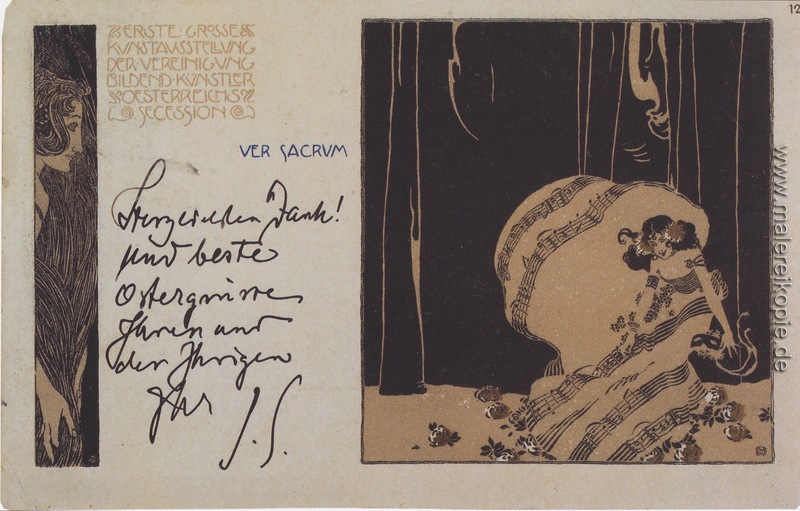 12
ERSTE GROSSE
KUNSTAUSSTELLUNG
DER VEREINIGUNG
BILDEND KÜNSTLER
OESTERREICHS
SECESSION
VER SACRVM
Herzlichsten Dank!
und beste
Ostergrüsse
Ihnen und
den Ihrigen
Ihr
J. S.
www.malereikopie.de